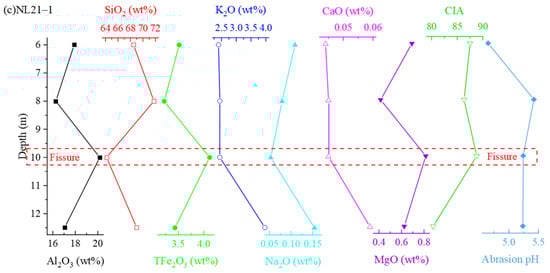 (c)NL21−1
SiO2 (wt%) K2O (wt%) CaO (wt%) CIA
64 66 68 70 72 2.5 3.0 3.5 4.0 0.05 0.06 80 85 90
6
8
Depth (m)
Fissure 10 Fissure
12
16 18 20 3.5 4.0 0.05 0.10 0.15 0.4 0.6 0.8 5.0 5.5
Al2O3 (wt%) TFe2O3 (wt%) Na2O (wt%) MgO (wt%) Abrasion pH